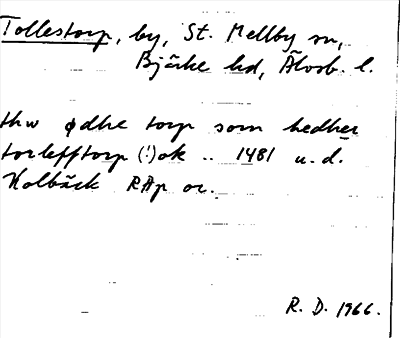 Tollestorp, by, St. Mellby sn,
Bjärke hd, Älvsb. l.
thw ødhe torp som hedher
torlefftorp (!) ok .. 1481 u. d.
Kolbäck RAp or.
R. D. 1966.